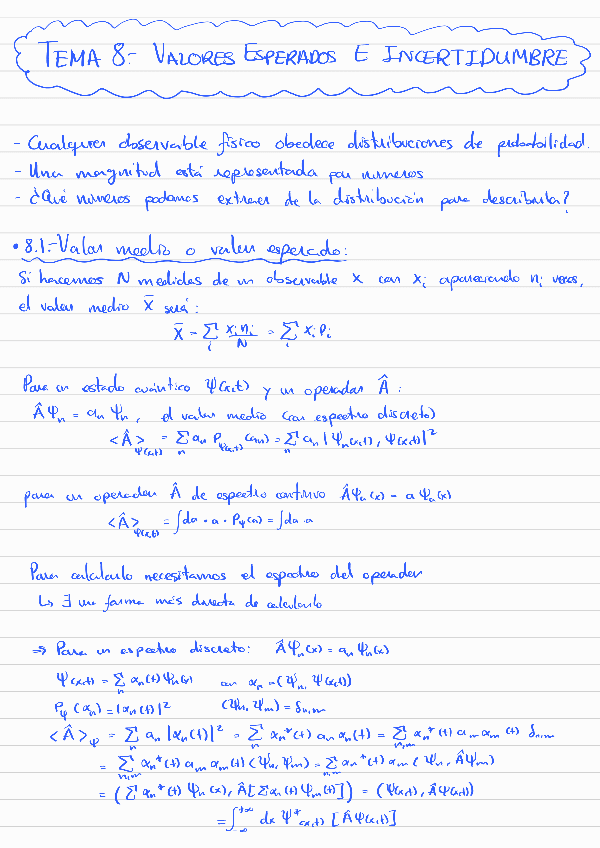 TEMA 8.- VALORES ESPERADOS E INCERTIDUMBRE
- Cualquier observable físico obedece distribuciones de probabilidad.
- Una magnitud está representada por números
- ¿Qué números podemos extraer de la distribución para describirla?
• 8.1.- Valor medio o valor esperado:
Si hacemos N medidas de un observable x con xᵢ apareciendo nᵢ veces,
el valor medio x̄ será:
x̄ = Σᵢ xᵢnᵢ/N = Σᵢ xᵢPᵢ
Para un estado cuántico Ψ(x,t) y un operador Â:
ÂΨₙ = aₙΨₙ, el valor medio (con espectro discreto)
<Â>_Ψ(x,t) = Σₙ aₙ P_Ψ(x,t)(aₙ) = Σₙ aₙ |Ψₙ(x,t), Ψ(x,t)|²
para un operador Â de espectro continuo ÂΨₐ(x) = aΨₐ(x)
<Â>_Ψ(x,t) = ∫da · a · P_Ψ(a) = ∫da · a
Para calcularlo necesitamos el espectro del operador
↳ ∃ una forma más directa de calcularlo
⇒ Para un espectro discreto: ÂΨₙ(x) = aₙΨₙ(x)
Ψ(x,t) = Σₙ αₙ(t)Ψₙ(x) con αₙ = (Ψₙ, Ψ(x,t))
P_Ψ(αₙ) = |αₙ(t)|² (Ψₙ, Ψₘ) = δₙ,ₘ
<Â>_Ψ = Σₙ aₙ |αₙ(t)|² = Σₙ αₙ*(t) aₙ αₙ(t) = Σₙ,ₘ αₙ*(t) aₘ αₘ(t) δₙ,ₘ
= Σₙ,ₘ αₙ*(t) aₘ αₘ(t) (Ψₙ, Ψₘ) = Σₙ,ₘ αₙ*(t) αₘ (Ψₙ, ÂΨₘ)
= (Σ αₙ*(t) Ψₙ(x), Â[Σαₙ(t) Ψₘ(t)]) = (Ψ(x,t), ÂΨ(x,t))
= ∫₋∞⁺∞ dx Ψ*(x,t) [ÂΨ(x,t)]